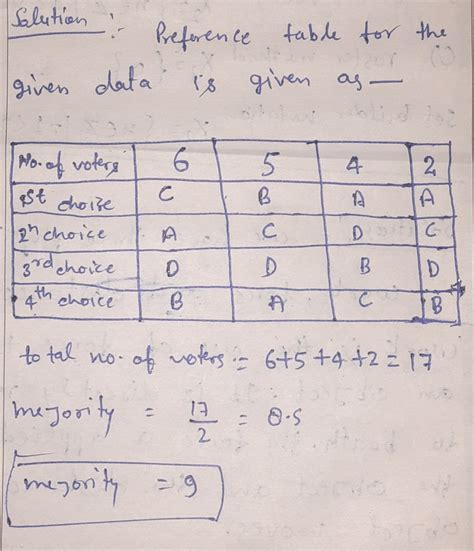 Solution :- Preference table for the
given data is given as —
No. of voters 6 5 4 2
1st choise C B A A
2n choice A C D C
3rd choice D D B D
4th choice B A C B
total no. of voters := 6+5+4+2 = 17
mejority = 17/2 = 8.5
mejority = 9